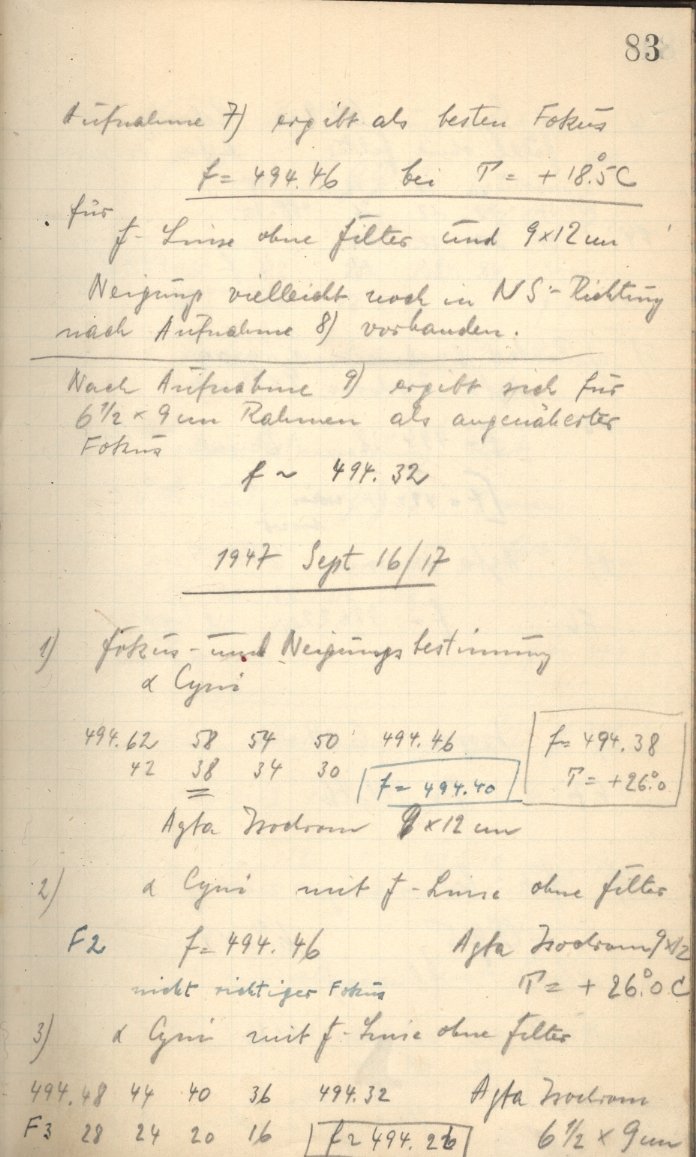 83
Aufnahme 7) ergibt als besten Fokus
f = 494.46 bei T = + 18.°5 C
für
f - Linse ohne Filter und 9x12 cm
Neigung vielleicht noch in NS - Richtung
nach Aufnahme 8) vorhanden.
Nach Aufnahme 9) ergibt sich für
6 1/2 x 9 cm Rahmen als angenäherter
Fokus
f ~ 494.32
1947 Sept 16/17
1) Fokus - und Neigungsbestimmung
α Cygni
494.62 58 54 50 494.46 f = 494.38
42 38 34 30 f = 494.40 T = +26.°0
Agfa Isochrom 9 x 12 cm
2) α Cygni mit f - Linse ohne Filter
F2 f = 494.46 Agfa Isochrom 9x12
nicht richtiger Fokus T = + 26.°0 C
3) α Cygni mit f - Linse ohne Filter
494.48 44 40 36 494.32 Agfa Isochrom
F3 28 24 20 16 f ~ 494.26 6 1/2 x 9 cm